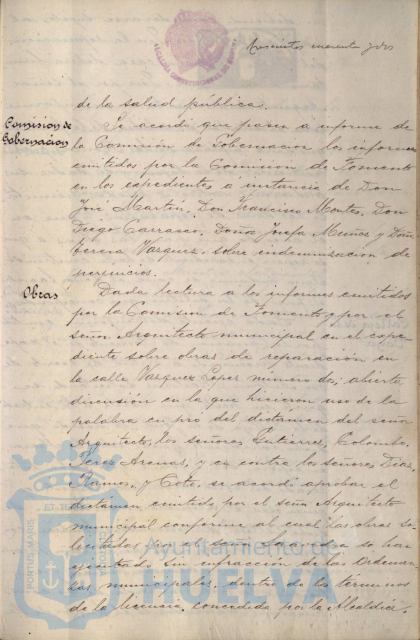 Doscientos cuarenta y dos
de la salud pública.
Comisión de Gobernación
Se acordó que pasen a informe de
la Comisión de Gobernación los informes
emitidos por la Comisión de Fomento
en los expedientes á instancia de Don
José Martín, Don Francisco Montes, Don
Diego Carrasco, Doña Josefa Muñoz y Doña
Teresa Vazquez, sobre indemnización de
perjuicios.
Obras
Dada lectura a los informes emitidos
por la Comisión de Fomento y por el
señor Arquitecto municipal en el expe-
diente sobre obras de reparación en
la calle Vazquez Lopez número dos; abierta
discusión en la que hicieron uso de la
palabra en pró del dictámen del señor
Arquitecto, los señores Gutierrez, Colombo,
Perez Arenas, y en contra los señores Diaz,
Ramos, y Coto, se acordó aprobar el
dictamen emitido por el señor Arquitecto
municipal conforme al cual las obras so-
licitadas por el señor se han
ejecutado sin infracción de las Ordenan-
zas municipales, dentro de los términos
de la licencia, concedida por la Alcaldía.
PORTUS MARIS
Ayuntamiento de
HUELVA